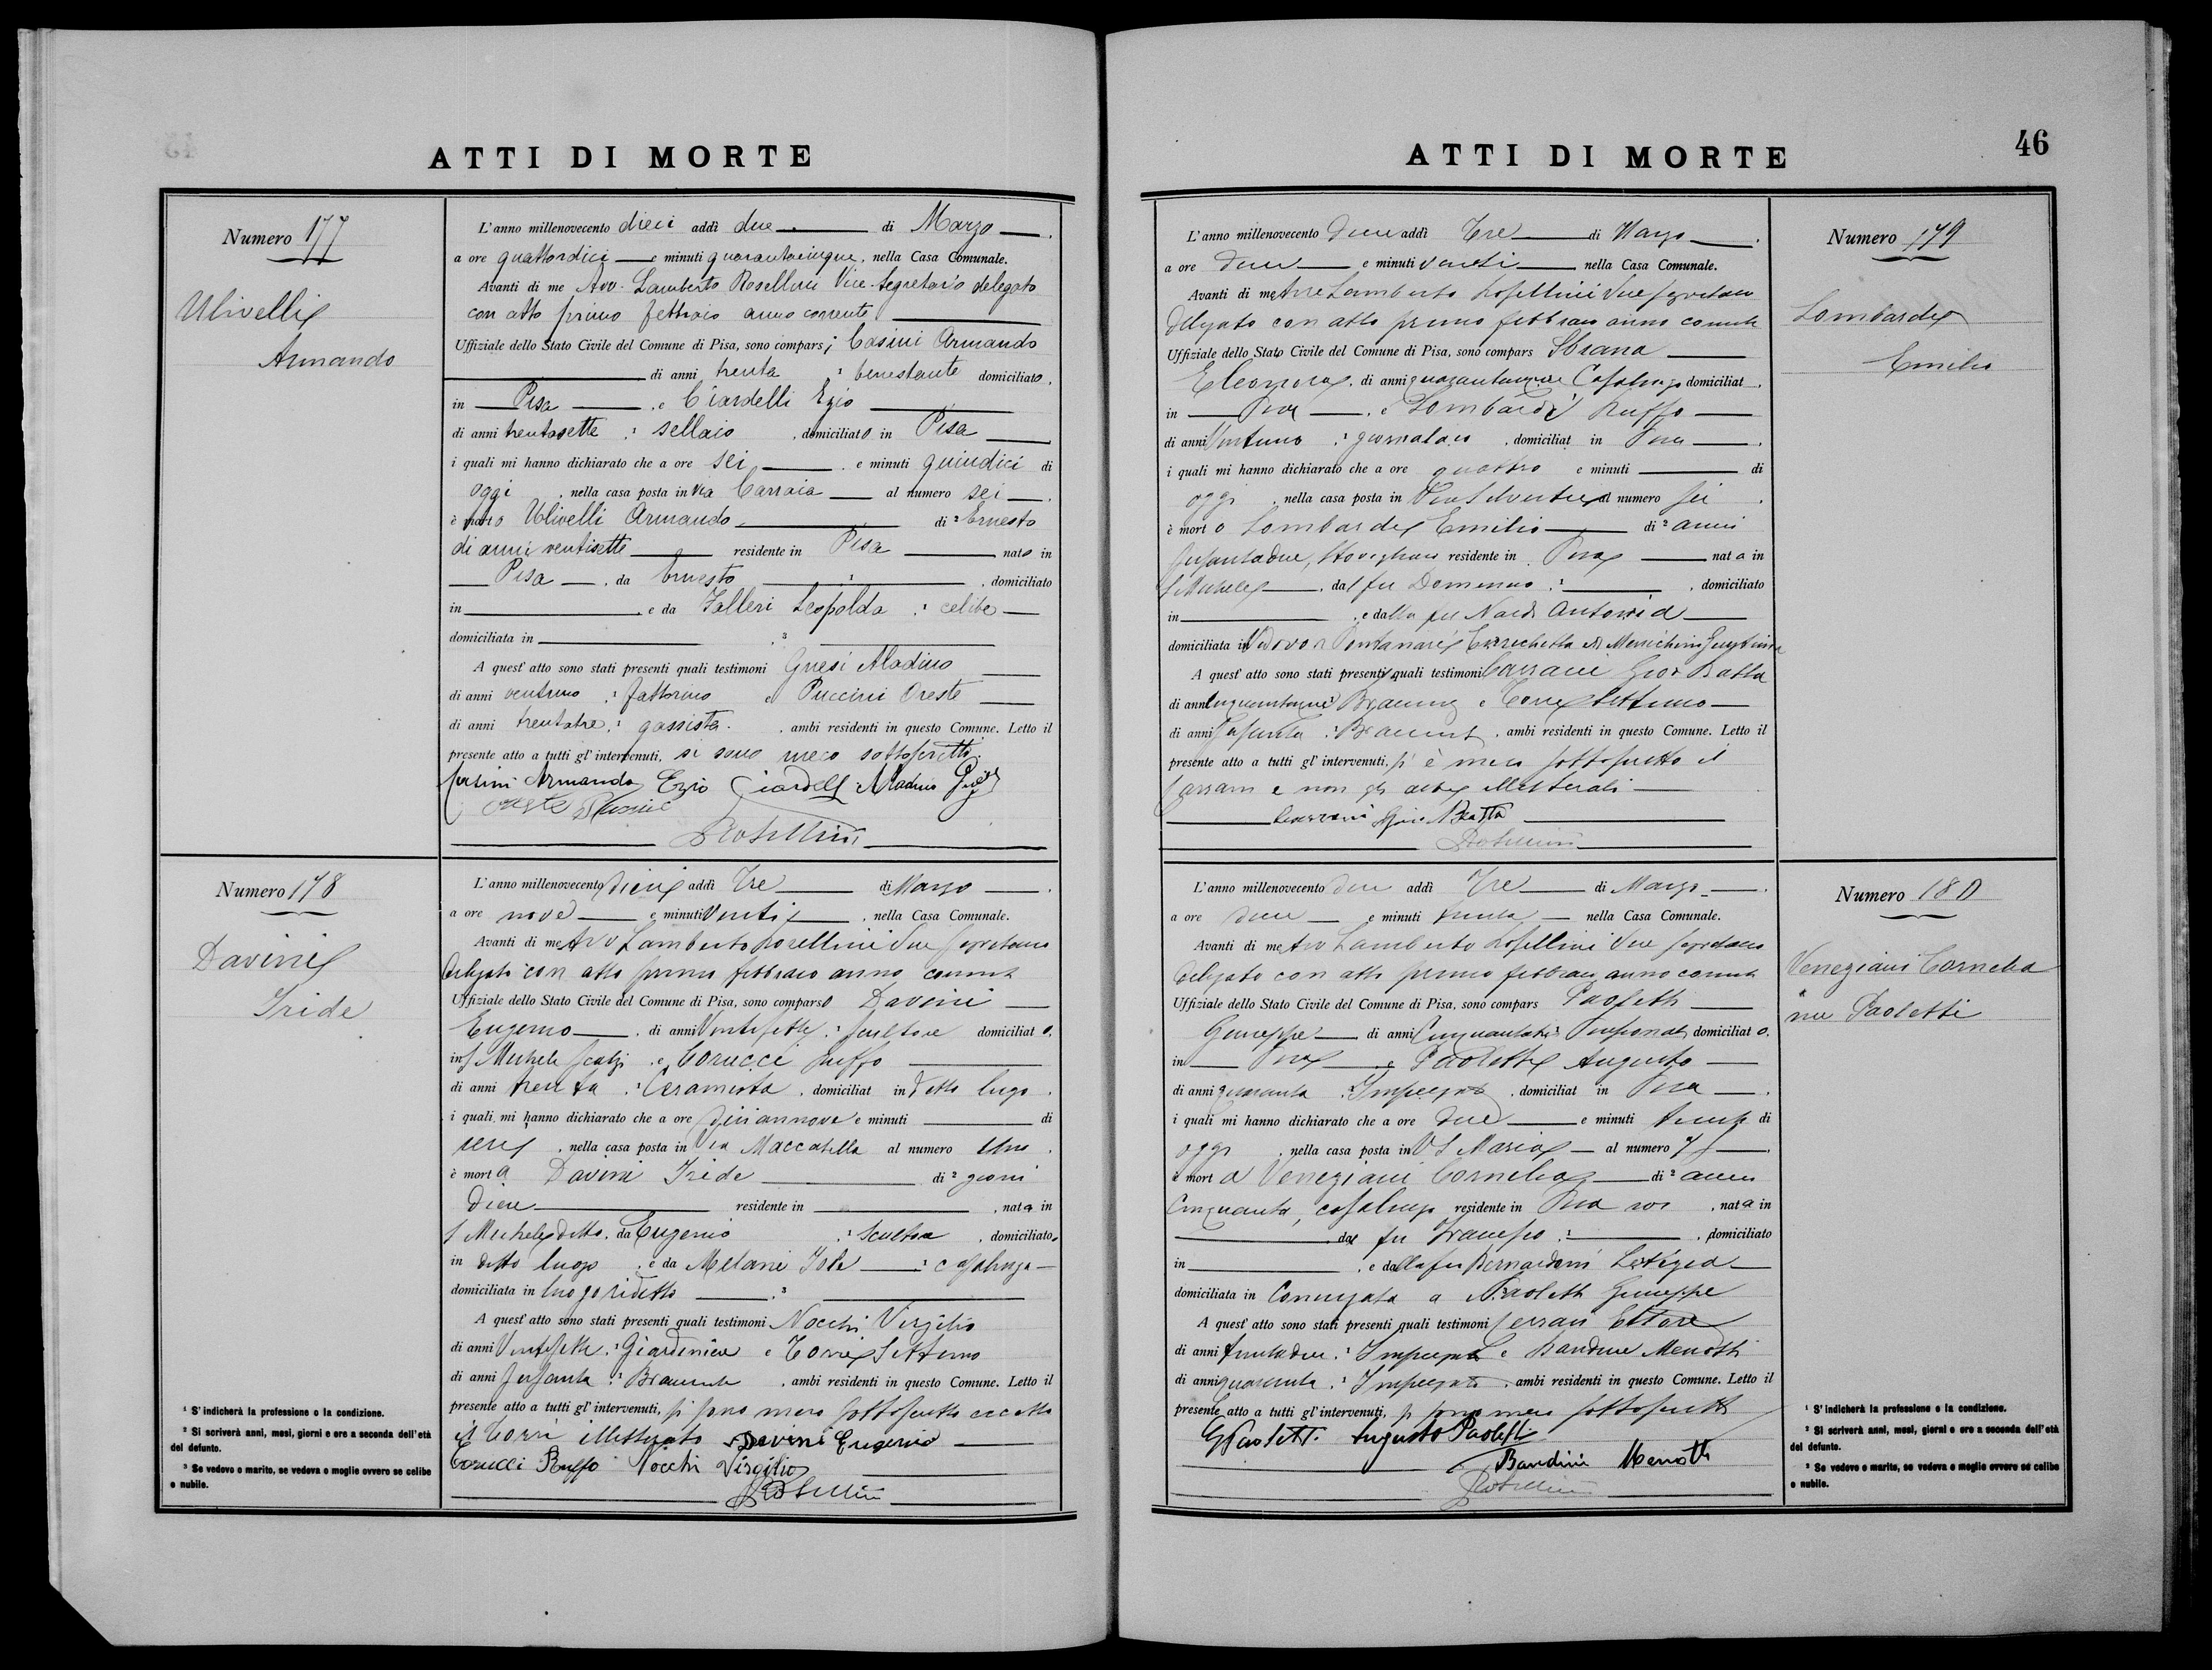 ATTI DI MORTE
Numero 177
Ulivelli
Armando
L'anno millenovecento dieci addì due di Marzo
a ore quattordici e minuti quarantacinque, nella Casa Comunale.
Avanti di me Avv. Lamberto Rosellini Vice-segretario delegato
con atto primo febbraio anno corrente
Uffiziale dello Stato Civile del Comune di Pisa, sono comparsi Casini Armando
di anni trenta : ¹ benestante domiciliato
in Pisa . e Ciardelli Ezio
di anni trentasette : ¹ sellaio , domiciliato in Pisa
i quali mi hanno dichiarato che a ore sei e minuti quindici di
oggi , nella casa posta in via Carraia al numero sei
è morto Ulivelli Armando di ² Ernesto
di anni ventisette residente in Pisa nato in
Pisa , da Ernesto : ¹ , domiciliato
in e da Falleri Leopolda : ¹ celibe
domiciliata in . ³
A quest' atto sono stati presenti quali testimoni Gnesi Aladino
di anni ventuno : ¹ fattorino e Puccini Oreste
di anni trentatre : ¹ gassista , ambi residenti in questo Comune. Letto il
presente atto a tutti gl' intervenuti, si sono meco sottoscritti.
Casini Armando Ezio Ciardelli Aladino
Rosellini
Numero 178
Davini
Iride
L'anno millenovecento dieci addì Tre di Marzo
a ore nove e minuti Venti , nella Casa Comunale.
Avanti di me Avv Lamberto Rosellini Vice segretario
delegato con atto primo febbraio anno corrente
Uffiziale dello Stato Civile del Comune di Pisa, sono comparso Davini
Eugenio , di anni Ventisette : ¹ scultore domiciliato
in S Michele Scalzi . e Corucci Ruffo
di anni trenta : ¹ Ceramista , domiciliat in detto luogo
i quali mi hanno dichiarato che a ore diciannove e minuti di
ieri , nella casa posta in Via Maccatella al numero Uno
è morta Davini Iride di ² giorni
dieci residente in , nata in
S Michele detto , da Eugenio : ¹ Scultore , domiciliato
in detto luogo , e da Melani Iole : ¹ casalinga
domiciliata in luogo ridetto . ³
A quest' atto sono stati presenti quali testimoni Nocchi Virgilio
di anni Ventisette : ¹ Giardiniere e Torre Settimo
di anni sessanta : ¹ Bracciante , ambi residenti in questo Comune. Letto il
presente atto a tutti gl' intervenuti, si sono meco sottoscritti eccetto
il Torre illetterato Davini Eugenio
Corucci Ruffo Nocchi Virgilio
Rosellini
¹ S' indicherà la professione o la condizione.
² Si scriverà anni, mesi, giorni e ore a seconda dell' età
del defunto.
³ Se vedovo o marito, se vedova o moglie ovvero se celibe
o nubile.
ATTI DI MORTE
46
Numero 179
Lombardi
Emilio
L'anno millenovecento dieci addì Tre di Marzo
a ore dieci e minuti venti nella Casa Comunale.
Avanti di me Avv Lamberto Rosellini Vice segretario
delegato con atto primo febbraio anno corrente
Uffiziale dello Stato Civile del Comune di Pisa, sono compars Sbrana
Eleonora , di anni Casalinga domiciliat
in Pisa , e Lombardi Ruffo
di anni Ventuno : ¹ giornalaio , domiciliat in Pisa
i quali mi hanno dichiarato che a ore quattro e minuti di
oggi , nella casa posta in Via S Silvestro al numero sei
è morto Lombardi Emilio di ² anni
sessantadue, residente in Pisa nata in
S Michele , dal fu Domenico : ¹ , domiciliato
in , e dalla fu Nardi Antonia
domiciliata in Vedovo Enrichetta
A quest' atto sono stati presenti quali testimoni Carrani Gio Batta
di anni ¹ e Torre Settimo
di anni sessanta : ¹ , ambi residenti in questo Comune. Letto il
presente atto a tutti gl' intervenuti, si è meco sottoscritto il
Carrani e non gli altri illetterati
Carrani Gio Batta
Rosellini
Numero 180
Veneziani Cornelia
nei Paoletti
L'anno millenovecento dieci addì Tre di Marzo
a ore dieci e minuti trenta nella Casa Comunale.
Avanti di me Avv Lamberto Rosellini Vice segretario
delegato con atto primo febbraio anno corrente
Uffiziale dello Stato Civile del Comune di Pisa, sono compars Paoletti
Giuseppe di anni domiciliato
in Pisa e Paoletti Augusto
di anni quaranta : ¹ Impiegato , domiciliat in Pisa
i quali mi hanno dichiarato che a ore due e minuti trenta di
oggi , nella casa posta in V S Maria al numero
è morta Veneziani Cornelia di ² anni
Cinquanta, casalinga residente in Pisa , nata in
dal fu : ¹ , domiciliato
in , e dalla fu Bernardoni Letizia
domiciliata in Coniugata a Paoletti Giuseppe
A quest' atto sono stati presenti quali testimoni Ferrari Ettore
di anni trentadue : ¹ Impiegato e Bandini Menotti
di anni quaranta : ¹ Impiegato , ambi residenti in questo Comune. Letto il
presente atto a tutti gl' intervenuti, si sono meco sottoscritti
G Paoletti Augusto Paoletti
Bandini Menotti
Rosellini
¹ S' indicherà la professione o la condizione.
² Si scriverà anni, mesi, giorni e ore a seconda dell' età
del defunto.
³ Se vedovo o marito, se vedova o moglie ovvero se celibe
o nubile.